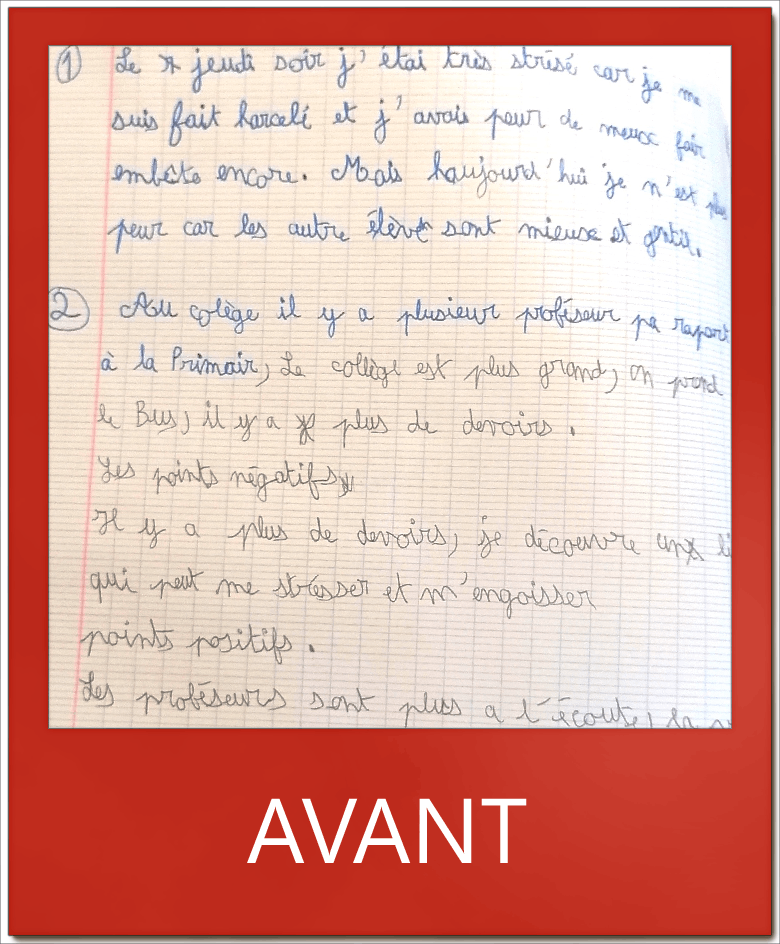 ① Le jeudi soir j'étai très strésé car je me
suis fait harcelé et j'avais peur de meux fair
embête encore. Mais haujourd'hui je n'est plus
peur car les autre élève sont mieuse et gentil.
② Au colège il y a plusieur proféseur pa raport
à la Primair, Le collège est plus grand, on prend
le Bus, il y a plus de devoirs.
Les points négatifs
Il y a plus de devoirs, je découvre un
qui peut me stresser et m'engoisser
points positifs.
Les proféseurs sont plus a l'écoute, la
AVANT